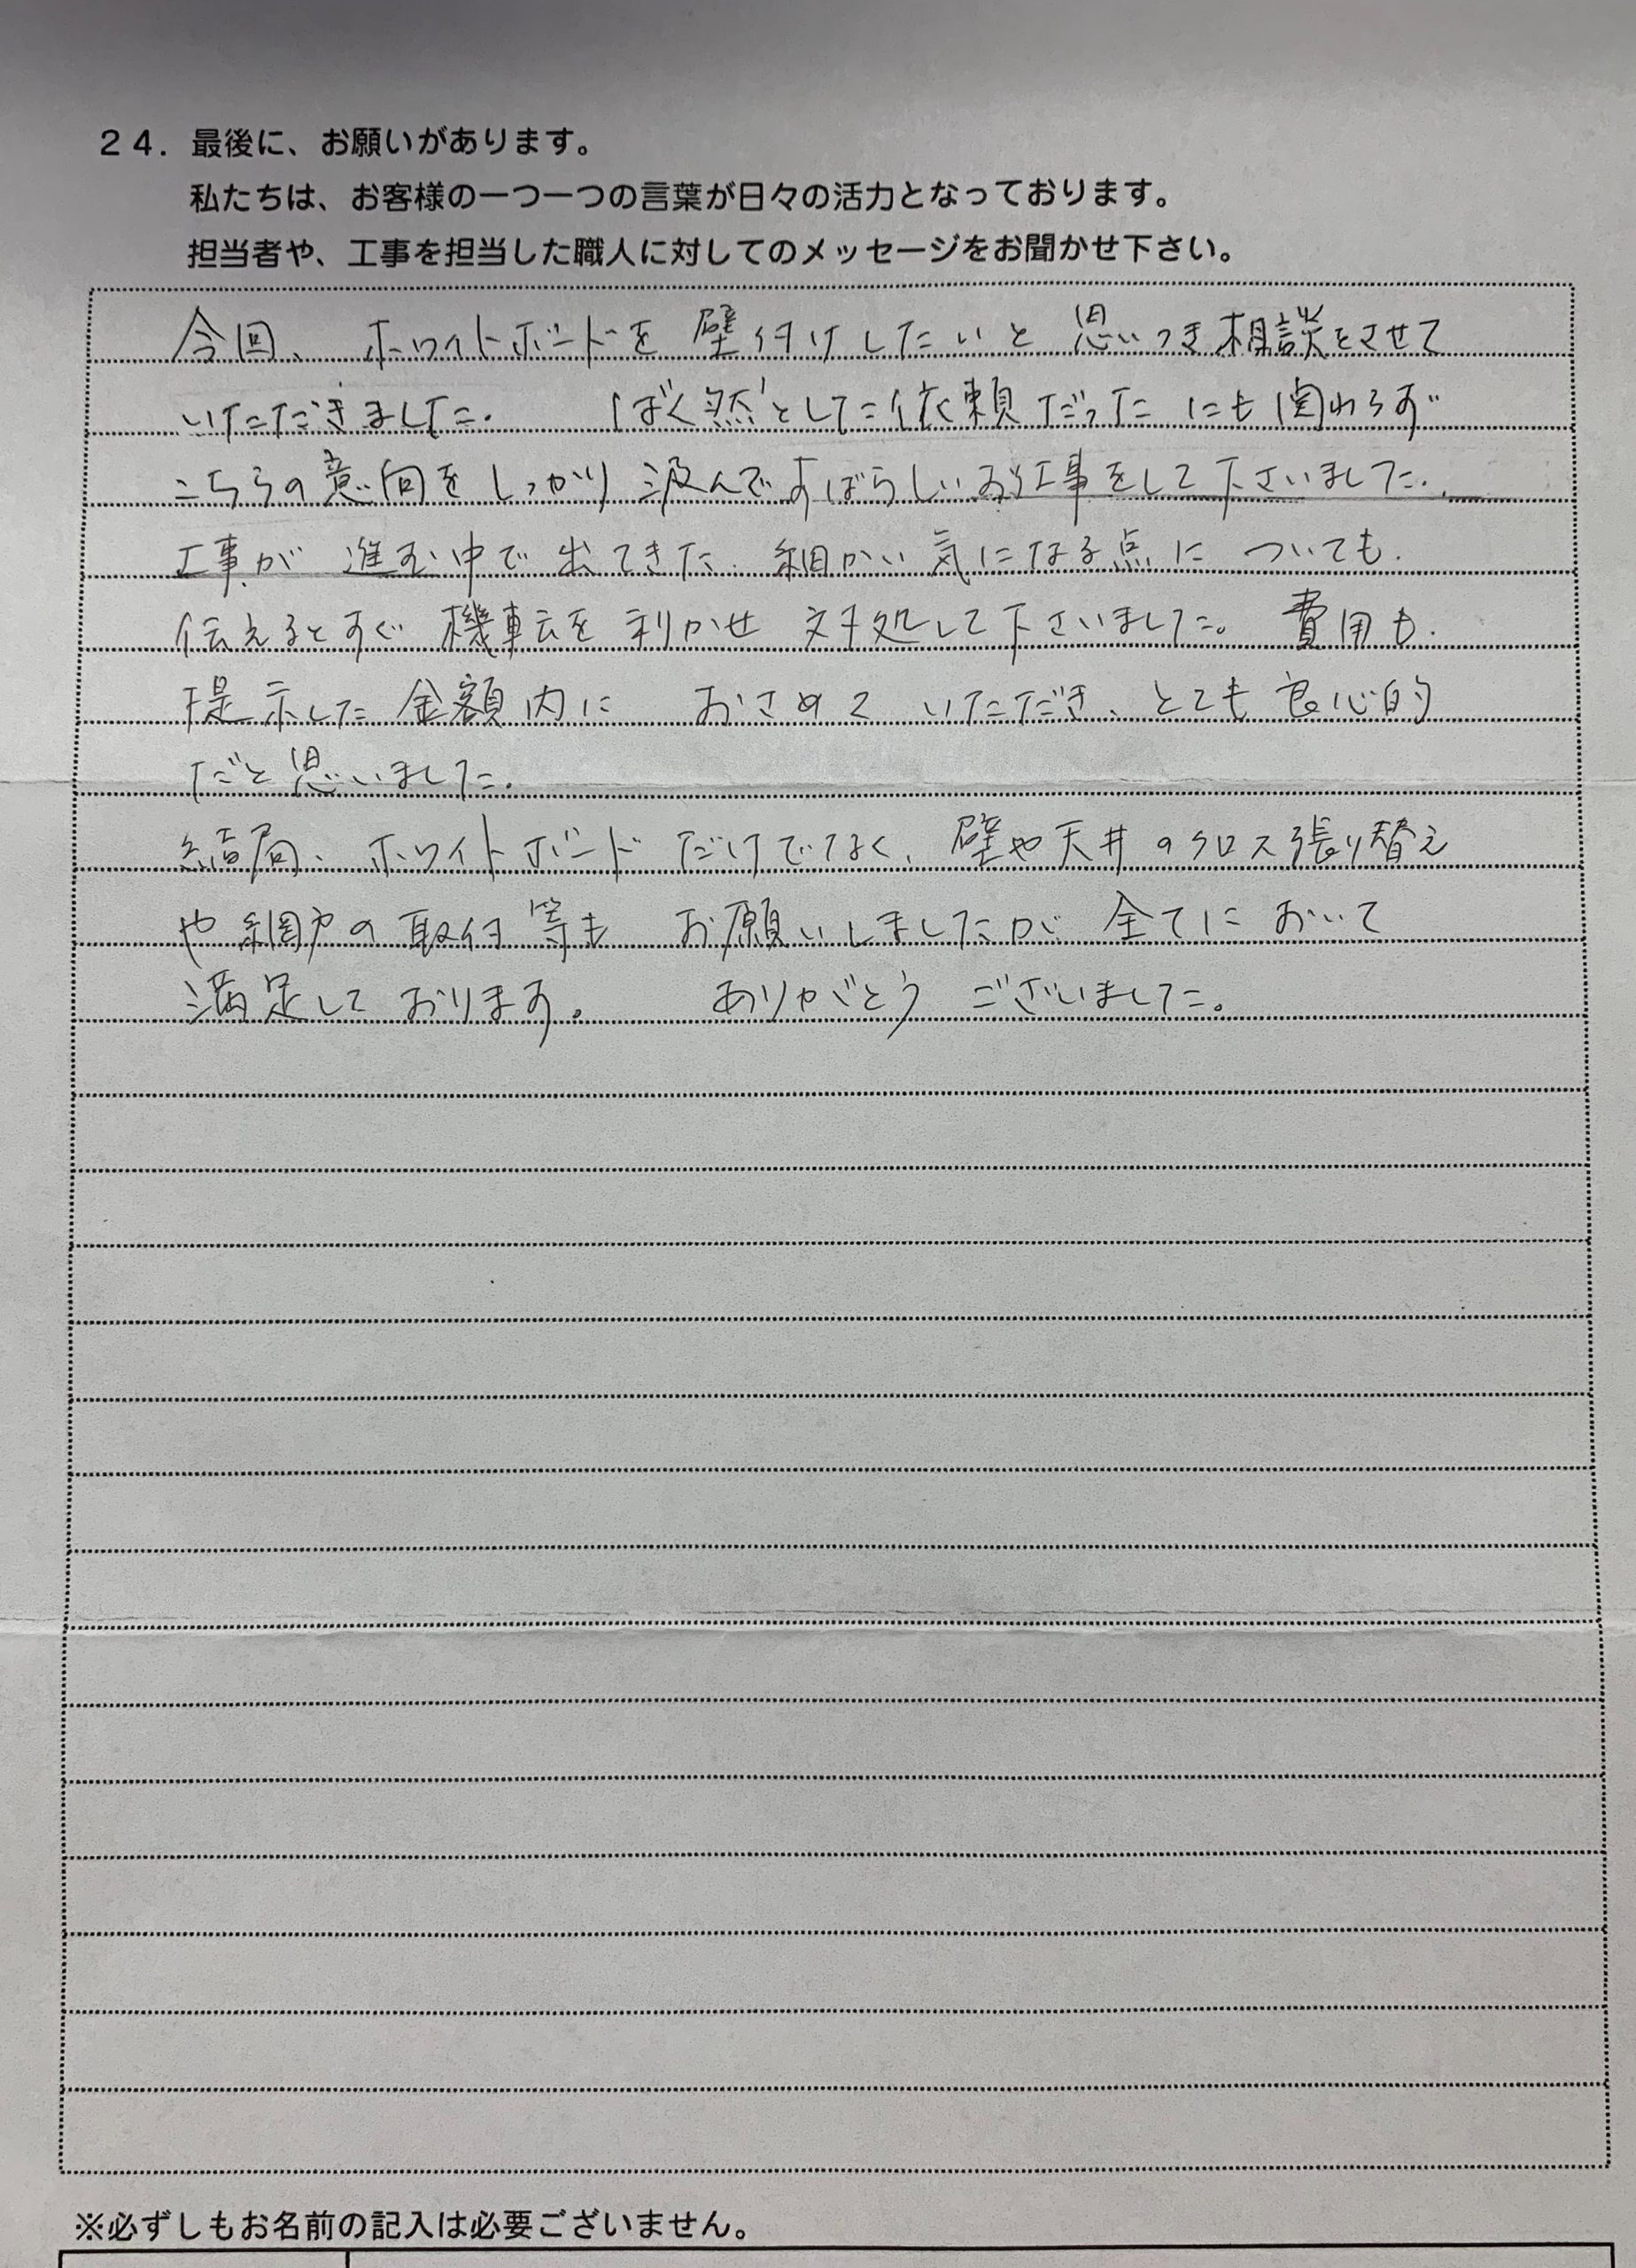 ２４．最後に、お願いがあります。
私たちは、お客様の一つ一つの言葉が日々の活力となっております。
担当者や、工事を担当した職人に対してのメッセージをお聞かせ下さい。
今回、ホワイトボードを壁付けしたいと思いつき相談をさせて
いただきました。ばく然としした依頼だったにも関わらず
こちらの意向をしっかり汲んですばらしいお工事をして下さいました。
工事が進む中で出てきた細かい気になる点についても、
伝えるとすぐ機転を利かせ対処して下さいました。費用も、
提示した金額内におさめていただき、とても良心的
だと思いました。
結局、ホワイトボードだけでなく、壁や天井のクロス張り替え
や網戸の取付等もお願いしましたが、全てにおいて
満足しております。ありがとうございました。
※必ずしもお名前の記入は必要ございません。